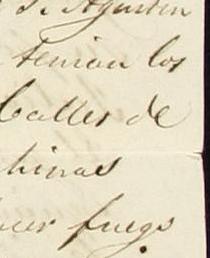 S. Agustin
tenian los
Calles de
hinas
cer fuego